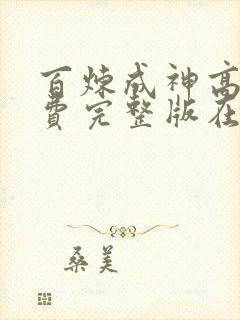 百炼成神高
费完整版在
桑美